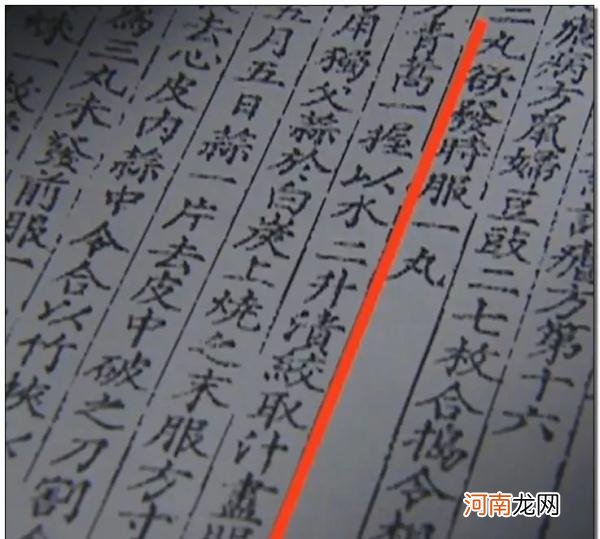 諸瘧方第十六
瘧病方鼠婦豆豉二七枚合搗令相
三丸欲發時服一丸
方青蒿一握以水二升漬絞取汁盡服
用獨父蒜於白炭上燒之末服方寸
五月五日蒜一片去皮中破之刀割
去心皮內蒜中令合以竹挾以
為三丸未發前服一
河南龙网